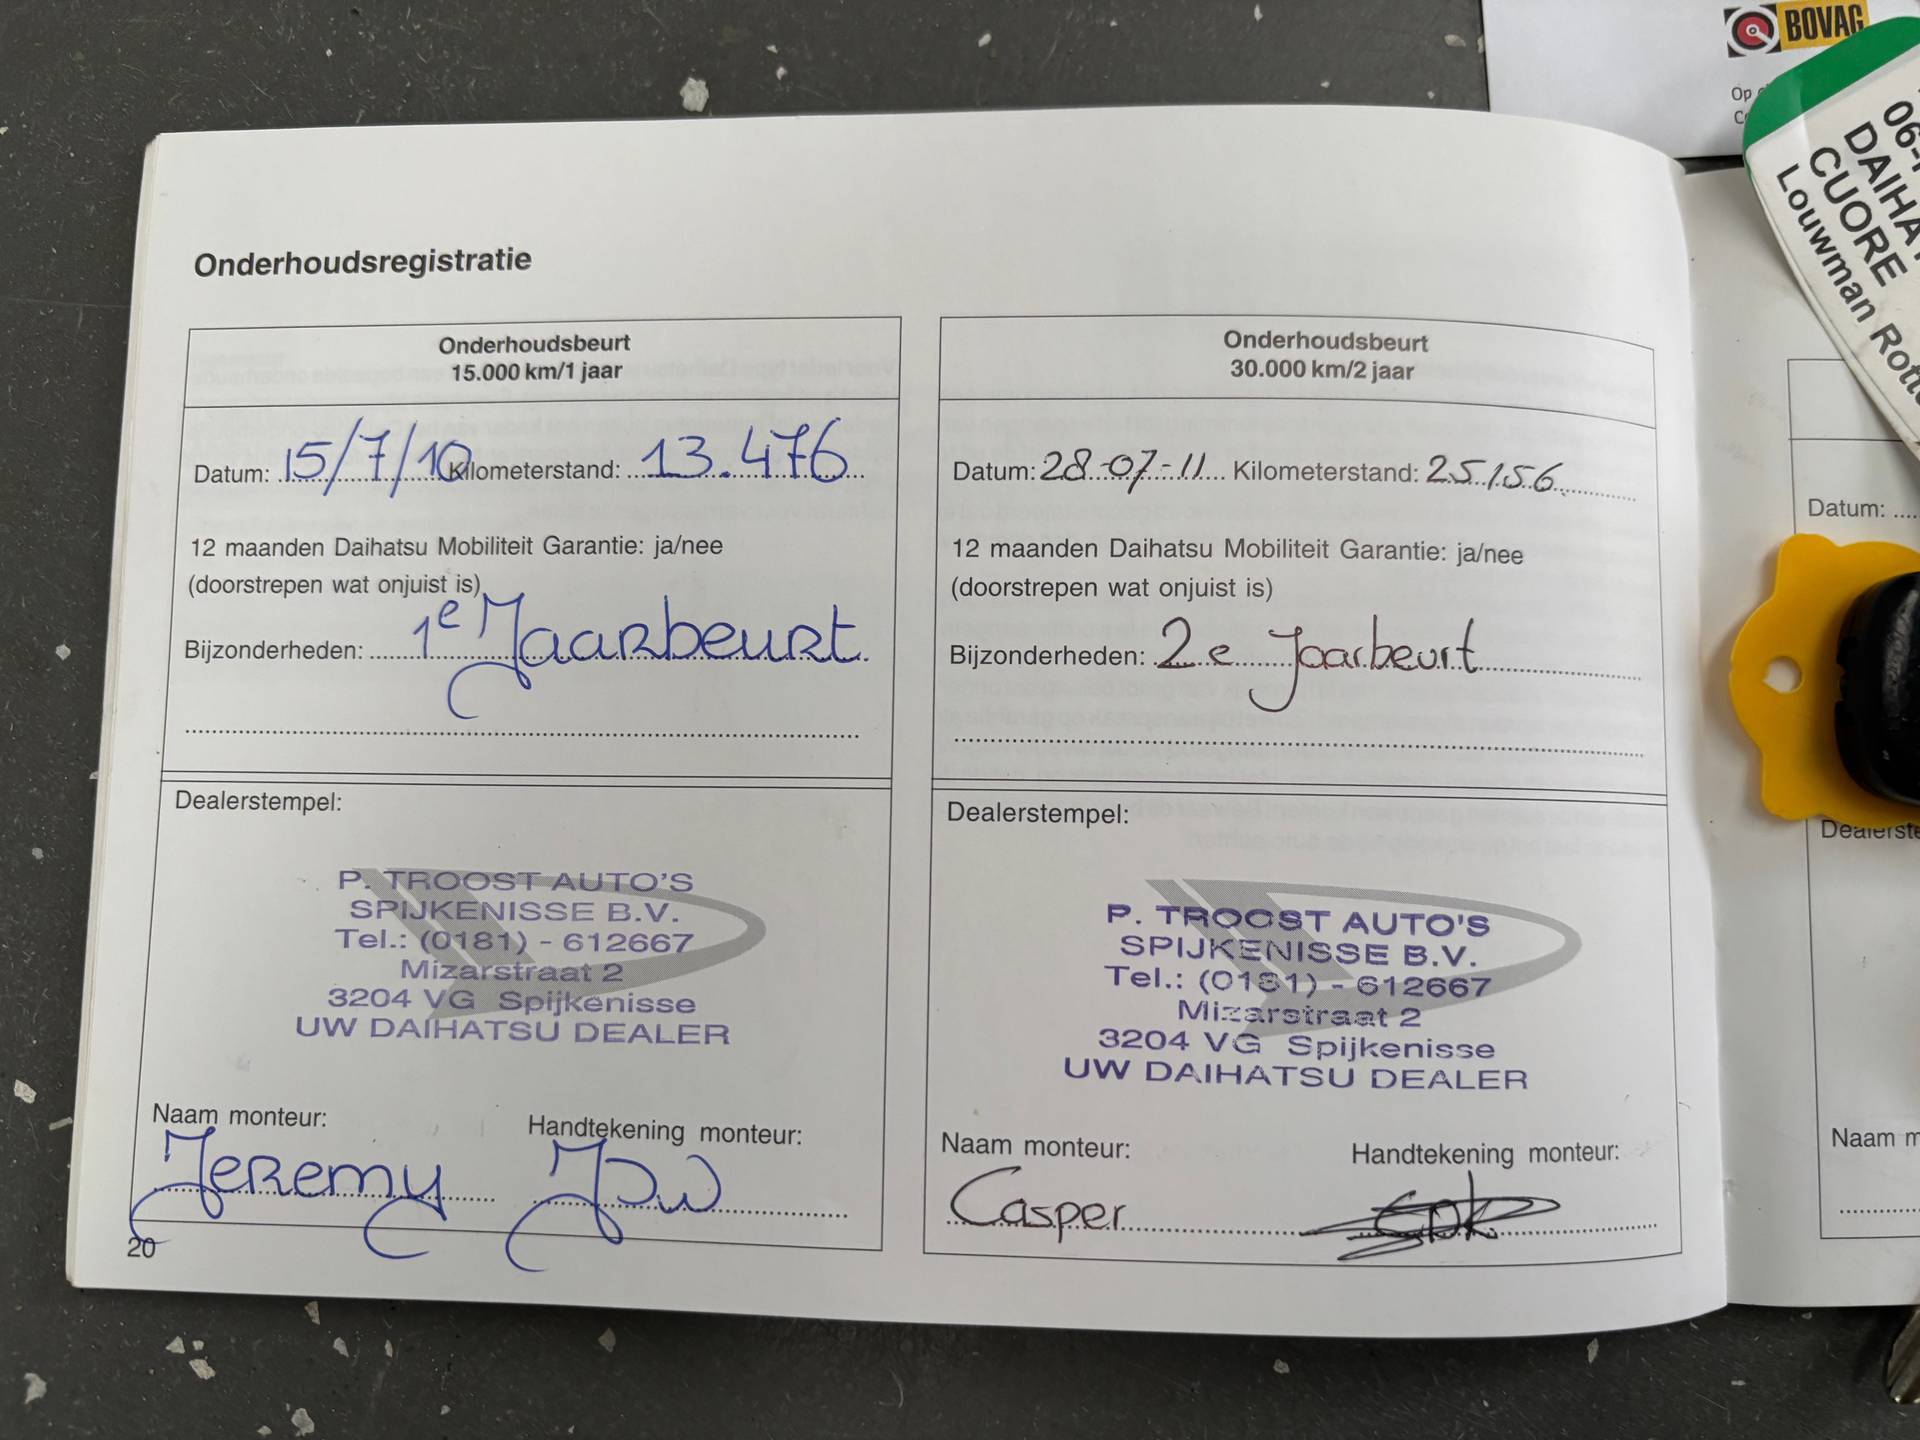 BOVAG
Op
06-
DAIHA
CUORE
Louwman Rott
Onderhoudsregistratie
Onderhoudsbeurt
15.000 km/1 jaar
Datum: 15/7/10 Kilometerstand: 13.476
12 maanden Daihatsu Mobiliteit Garantie: ja/nee
(doorstrepen wat onjuist is)
Bijzonderheden: 1e Jaarbeurt.
Dealerstempel:
P. TROOST AUTO'S
SPIJKENISSE B.V.
Tel.: (0181) - 612667
Mizarstraat 2
3204 VG Spijkenisse
UW DAIHATSU DEALER
Naam monteur: Handtekening monteur:
Jeremy JDW
20
Onderhoudsbeurt
30.000 km/2 jaar
Datum: 28-07-11 Kilometerstand: 25156
12 maanden Daihatsu Mobiliteit Garantie: ja/nee
(doorstrepen wat onjuist is)
Bijzonderheden: 2e Jaarbeurt
Dealerstempel:
P. TROOST AUTO'S
SPIJKENISSE B.V.
Tel.: (0181) - 612667
Mizarstraat 2
3204 VG Spijkenisse
UW DAIHATSU DEALER
Naam monteur: Handtekening monteur:
Casper
Datum:
Dealerste
Naam m